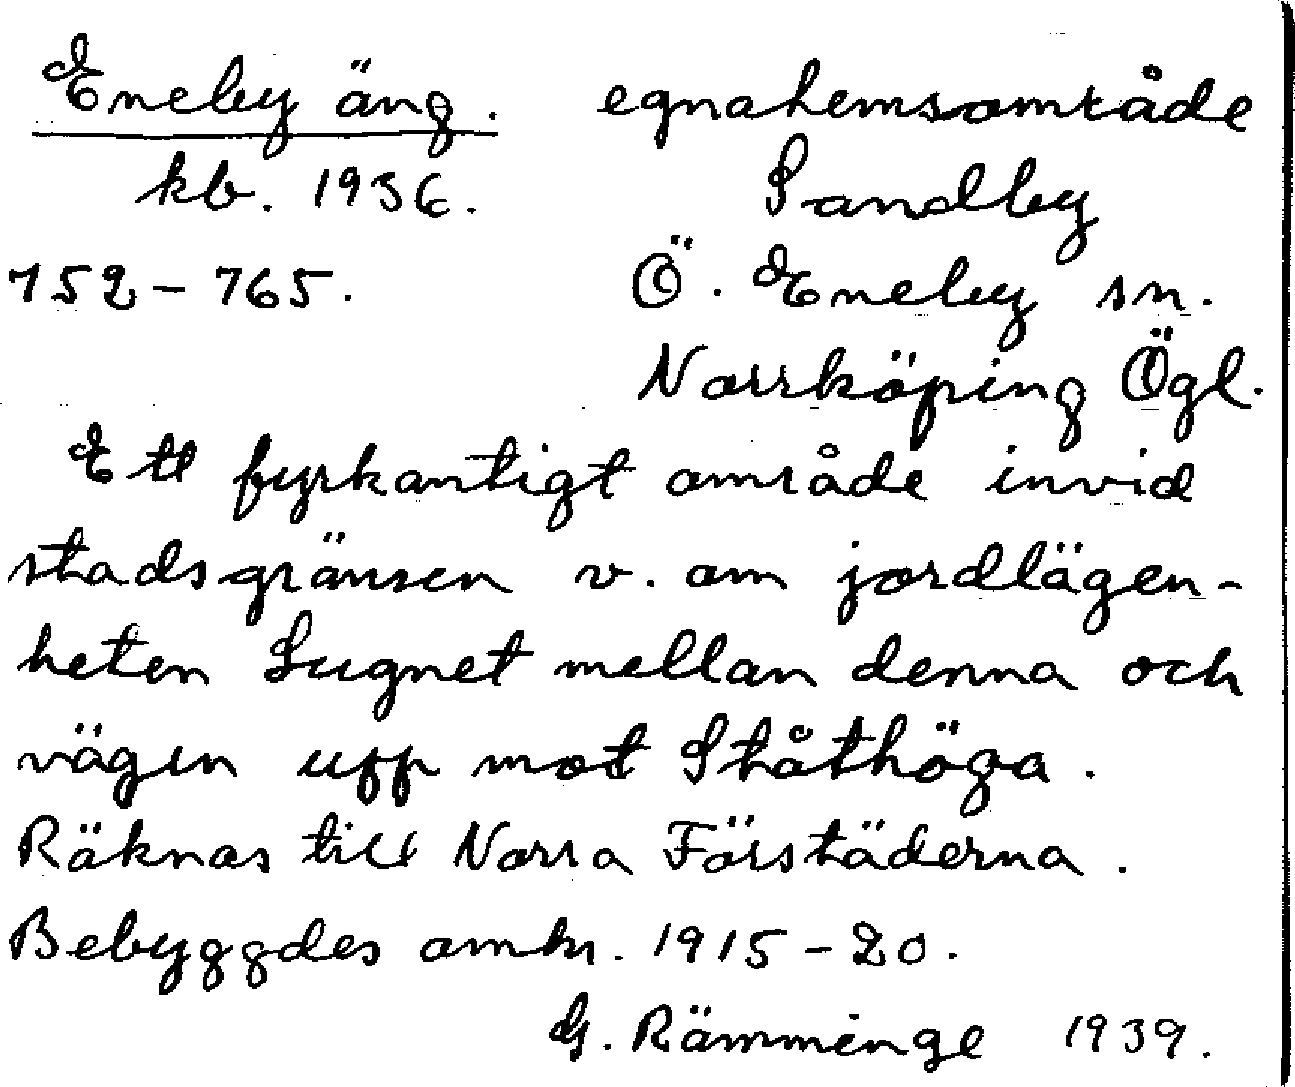 Eneby äng. egnahemsområde
kb. 1936. Sandby
752-765. Ö. Eneby sn.
Norrköping Ögl.
Ett fyrkantigt område invid
stadsgränsen v. om jordlägen-
heten Lugnet mellan denna och
vägen upp mot Ståthöga.
Räknas till Norra Förstäderna.
Bebyggdes omkr. 1915-20.
G. Rämminge 1939.